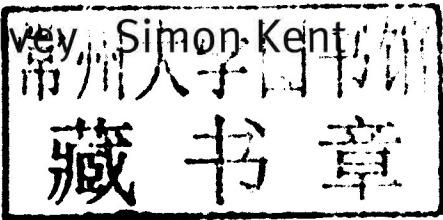 vey Simon Kent
常州大学图书馆
藏书章